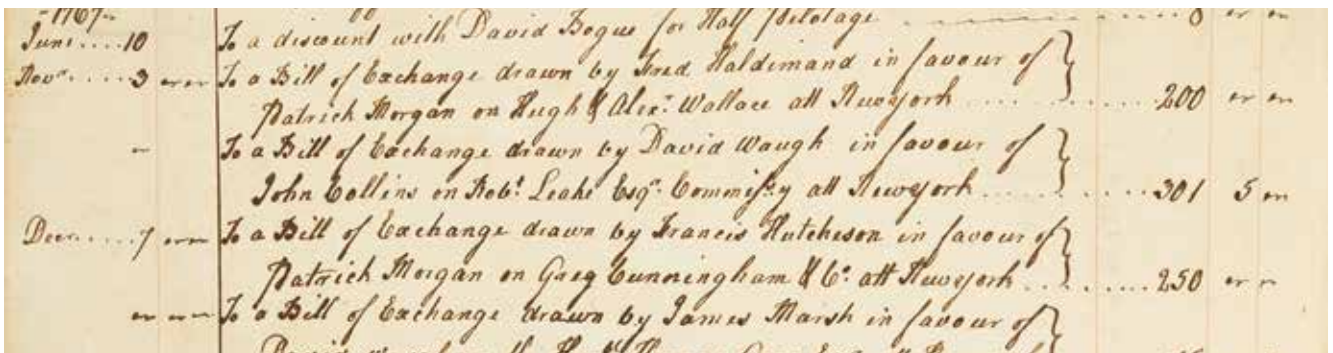 -1767-
June....10 To a discount with David Bogue for Half pilotage
Novr.....3 To a Bill of Exchange drawn by Fred Haldimand in favour of
Patrick Morgan on Hugh & Alexr. Wallace att Newyork ..... 200
To a Bill of Exchange drawn by David Waugh in favour of
John Collins on Robt. Leake Esqr. Commissy att Newyork ..... 301 5
Decr.....7 To a Bill of Exchange drawn by Francis Hutcheson in favour of
Patrick Morgan on Greg Cunningham & Co. att Newyork ..... 250
To a Bill of Exchange drawn by James Marsh in favour of